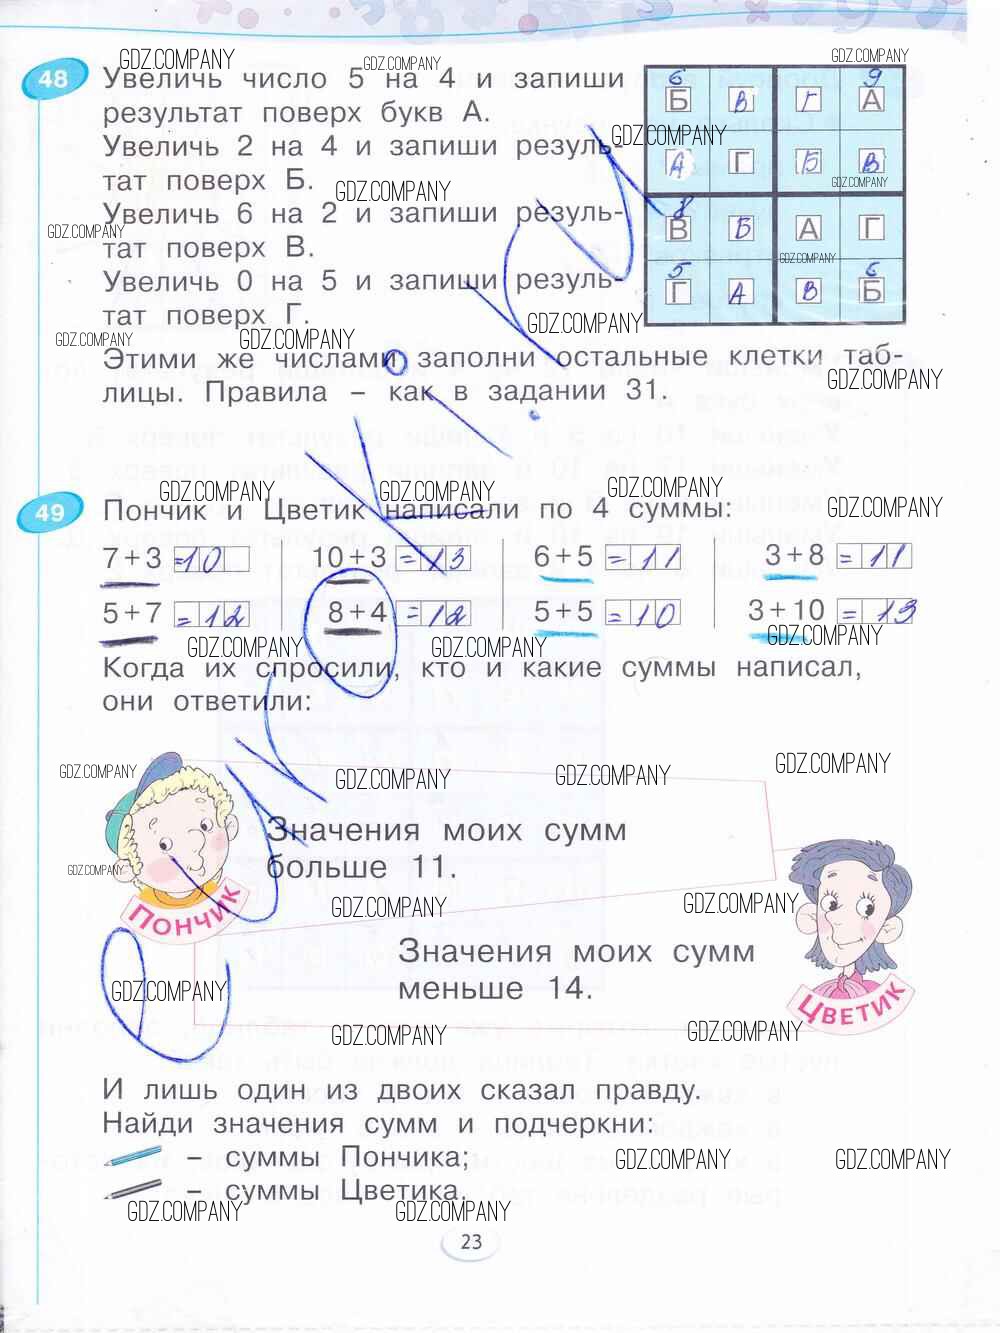 GDZ.COMPANY GDZ.COMPANY GDZ.COMPANY
48 Увеличь число 5 на 4 и запиши
результат поверх букв А.
GDZ.COMPANY
Увеличь 2 на 4 и запиши резуль-
тат поверх Б.
GDZ.COMPANY GDZ.COMPANY
Увеличь 6 на 2 и запиши резуль-
GDZ.COMPANY
тат поверх В.
GDZ.COMPANY
Увеличь 0 на 5 и запиши резуль-
тат поверх Г.
GDZ.COMPANY GDZ.COMPANY GDZ.COMPANY
6 9
Б В Г А
А Г Б В
8
В Б А Г
5 6
Г А В Б
Этими же числами заполни остальные клетки таб-
GDZ.COMPANY
лицы. Правила – как в задании 31.
GDZ.COMPANY GDZ.COMPANY GDZ.COMPANY GDZ.COMPANY
49 Пончик и Цветик написали по 4 суммы:
7+3 =10 10+3 =13 6+5 =11 3+8 =11
5+7 =12 8+4 =12 5+5 =10 3+10 =13
GDZ.COMPANY GDZ.COMPANY GDZ.COMPANY
Когда их спросили, кто и какие суммы написал,
они ответили:
GDZ.COMPANY GDZ.COMPANY GDZ.COMPANY GDZ.COMPANY
Значения моих сумм
больше 11.
GDZ.COMPANY
ПОНЧИК
GDZ.COMPANY GDZ.COMPANY
Значения моих сумм
меньше 14.
GDZ.COMPANY
ЦВЕТИК
GDZ.COMPANY GDZ.COMPANY
И лишь один из двоих сказал правду.
Найди значения сумм и подчеркни:
– суммы Пончика;
GDZ.COMPANY GDZ.COMPANY
– суммы Цветика.
GDZ.COMPANY GDZ.COMPANY
23